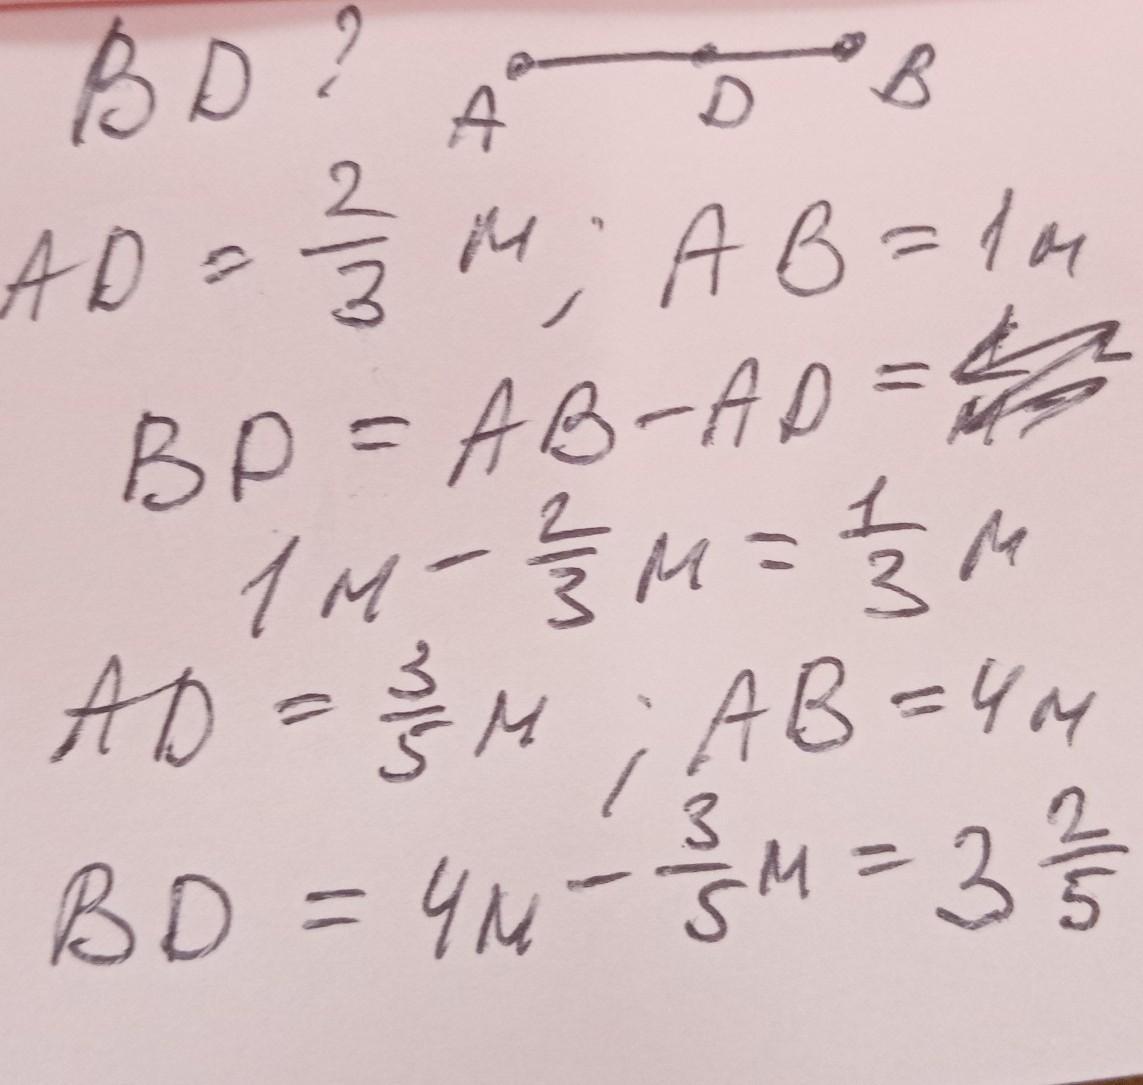 BD ?
A D B
AD = 2/3 м ; AB = 1м
BD = AB - AD =
1м - 2/3 м = 1/3 м
AD = 3/5 м ; AB = 4м
BD = 4м - 3/5 м = 3 2/5